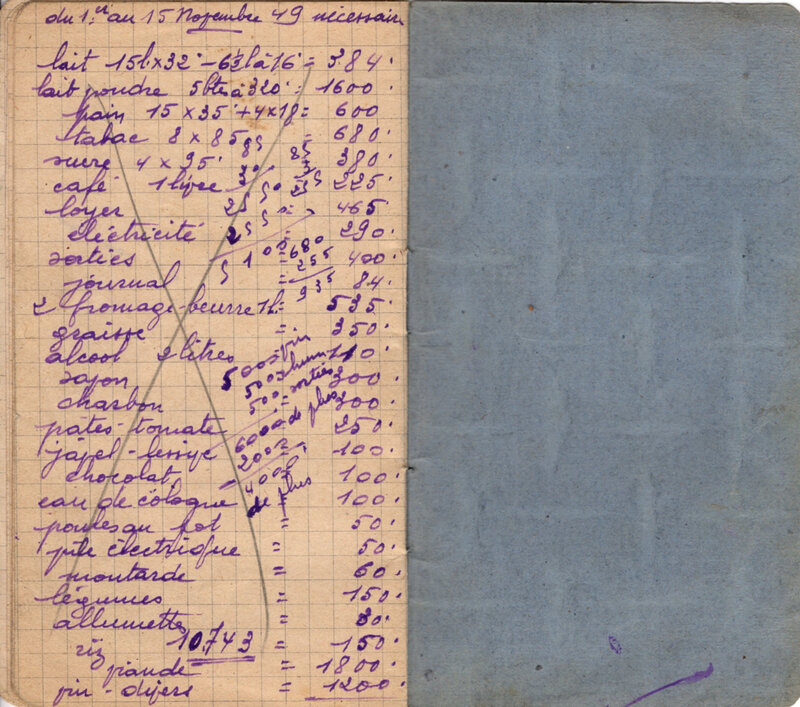 du 1er au 15 Novembre 49 nécessaire
lait 15l. x 32 - à 16 = 584
lait poudre 5btes à 320 = 1600
pain 15 x 35 + 4 x 18 = 600
tabac 8 x 85 = 680
sucre 4 x 95 380
café 1 livre 225
loyer = 465
éléctricité = 290
sorties = 400
journal = 84
fromage-beurre 1l. = 535
graisse = 350
alcool 2 litres 110
savon 300
charbon = 300
pâtes-tomate 250
javel-lessive = 100
chocolat 100
eau de cologne = 100
poudre au pot = 50
pile électrique = 50
moutarde = 60
légumes = 150
allumettes = 30
riz 10743 = 150
viande = 1800
vin-divers = 1200
85
255
5100
680
255
935
500 vin
500 rhum
500 sorties
6000 de plus
2000
4000
de plus